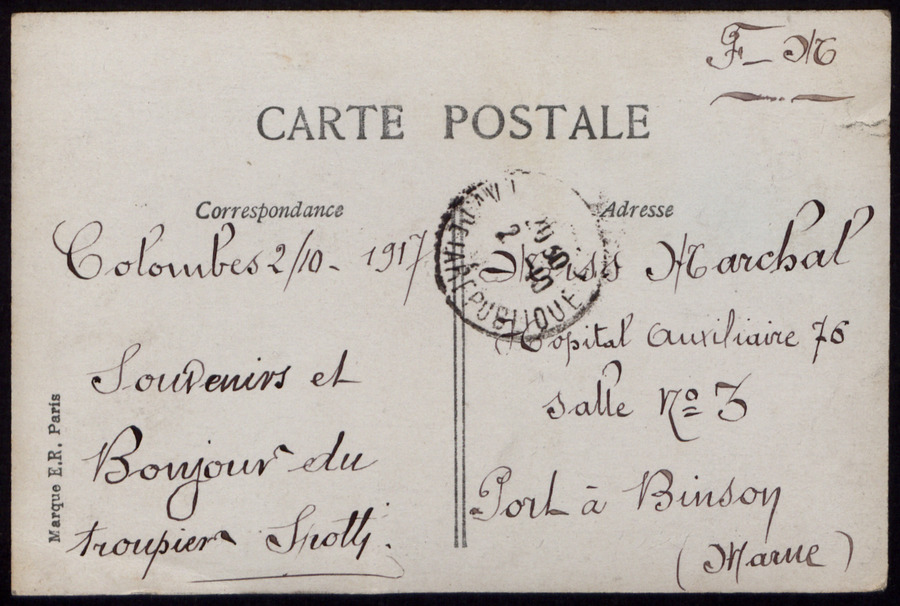 F_ M
CARTE POSTALE
Correspondance
Colombes 2/10 - 1917
Souvenirs et
Bonjour du
troupier
Marque E.R. Paris
Adresse
Marchal
Hopital auxiliaire 76
Salle No 3
Port à Binson
(Marne)
2